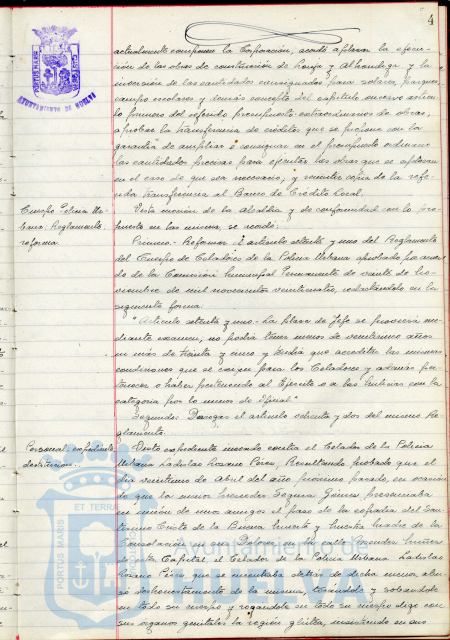 4
PORTUS MARIS
AYUNTAMIENTO DE HUELVA
actualmente componen la Corporación, acordó aplazar la ejecu-
ción de las obras de construcción de Lonja y Alhóndiga y la
inversión de las cantidades consignadas para solares, parques,
campos escolares y demás conceptos del capítulo once artícu-
lo primero del referido presupuesto extraordinario de obras,
aprobar la transferencia de créditos que se precisen con la
garantía de ampliar o consignar en el presupuesto ordinario
las cantidades precisas para ejecutar las obras que se aplazan
en el caso de que sea necesario, y remitir copia de la refe-
rida transferencia al Banco de Crédito Local.
Cuerpo Policía Ur-
bana: Reglamento
reforma.
Vista moción de la Alcaldía y de conformidad con lo pro-
puesto en la misma, se acordó:
Primero: Reformar el artículo setenta y uno del Reglamento
del Cuerpo de Celadores de la Policía Urbana aprobado por acuer-
do de la Comisión Municipal Permanente de veinte de no-
viembre de mil novecientos veinticuatro, redactándolo en la
siguiente forma:
"Artículo setenta y uno.- La plaza de Jefe se proveerá me-
diante examen, no podrá tener menos de veintiuno años
ni más de treinta y cinco y tendrá que acreditar las mismas
condiciones que se exijan para los Celadores y además per-
tenecer o haber pertenecido al Ejército o a las Milicias con la
categoría por lo menos de Oficial"
Segundo: Derogar el artículo ochenta y dos del mismo Re-
glamento.
Personal: expediente
destitución.
Visto expediente incoado contra el Celador de la Policía
Urbana Ladislao Lozano Pérez, Resultando probado que el
día veintiuno de Abril del año próximo pasado, en ocasión
de que la menor Mercedes Segura Gómez presenciaba
en unión de unos amigos el paso de la cofradía del San-
tísimo Cristo de la Buena Muerte y Nuestra Madre de la
Consolación en sus Dolores en la calle
de esta Capital, el Celador de la Policía Urbana Ladislao
Lozano Pérez que se encontraba detrás de dicha menor abu-
só deshonestamente de la misma, tocándole y sobándole
en todo su cuerpo y rozándole en todo su cuerpo digo con
sus órganos genitales la región glútea, insistiendo en sus
ET TERRAE
PORTUS MARIS
Ayuntamiento de
HUELVA